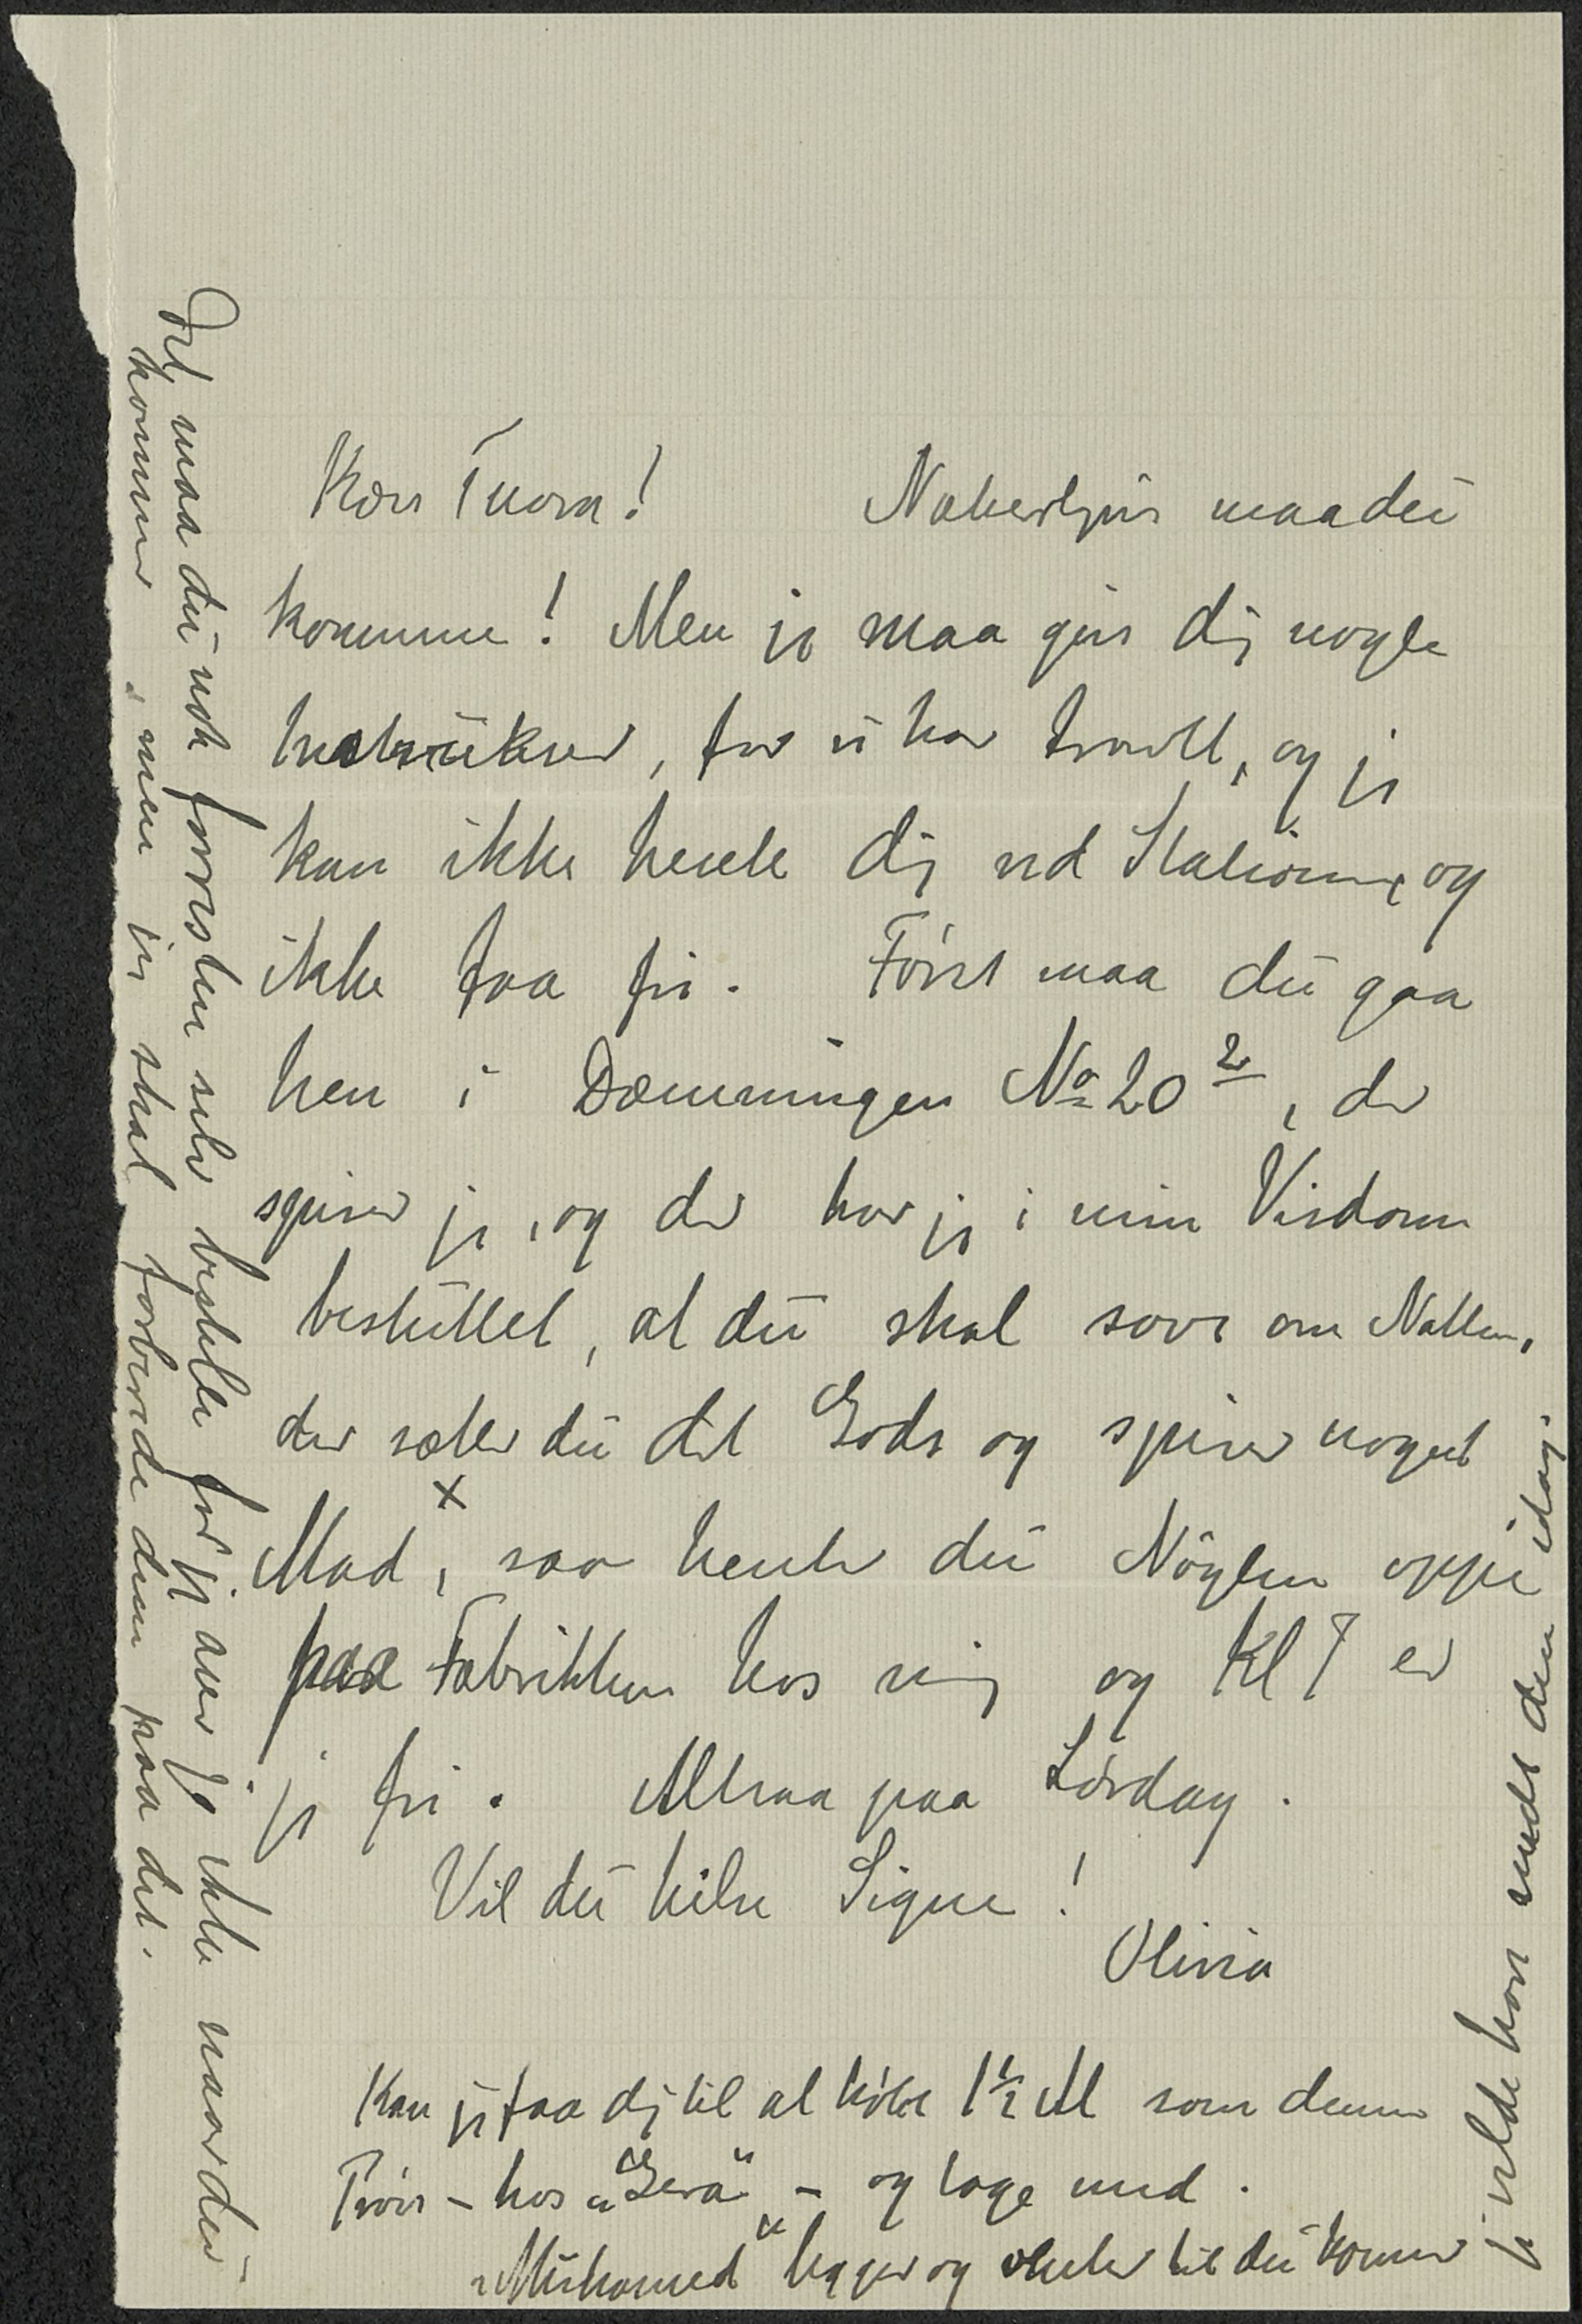 Kære Thora! Naturligvis maa du
komme! Men jeg maa give dig nogle
Instrukser, for vi har travlt, og jeg
kan ikke hente dig ved Stationen, og
ikke faa fri. Först maa du gaa
hen i Dæmningen No 20 2, der
spiser jeg, og der har jeg i min Visdom
besluttet, at du skal sove om Natten,
der sætter du dit Gods og spiser noget
x
Mad, saa henter du Nöglen oppe
paa Fabrikken hos mig og Kl 7 er
jeg fri. Altsaa paa Lördag.
Vil du hilse Signe!
Olivia
Kan jeg faa dig til at köbe 1 1/2 Al som denne
Pröve – hos „Gera" – og tage med.
„Muhamed" ligger og venter til du kommer
jeg vilde have sendt den idag.
Det maa du nok forresten selv bestille for jeg aner jo ikke naar du
kommer, men jeg skal forberede dem paa det.